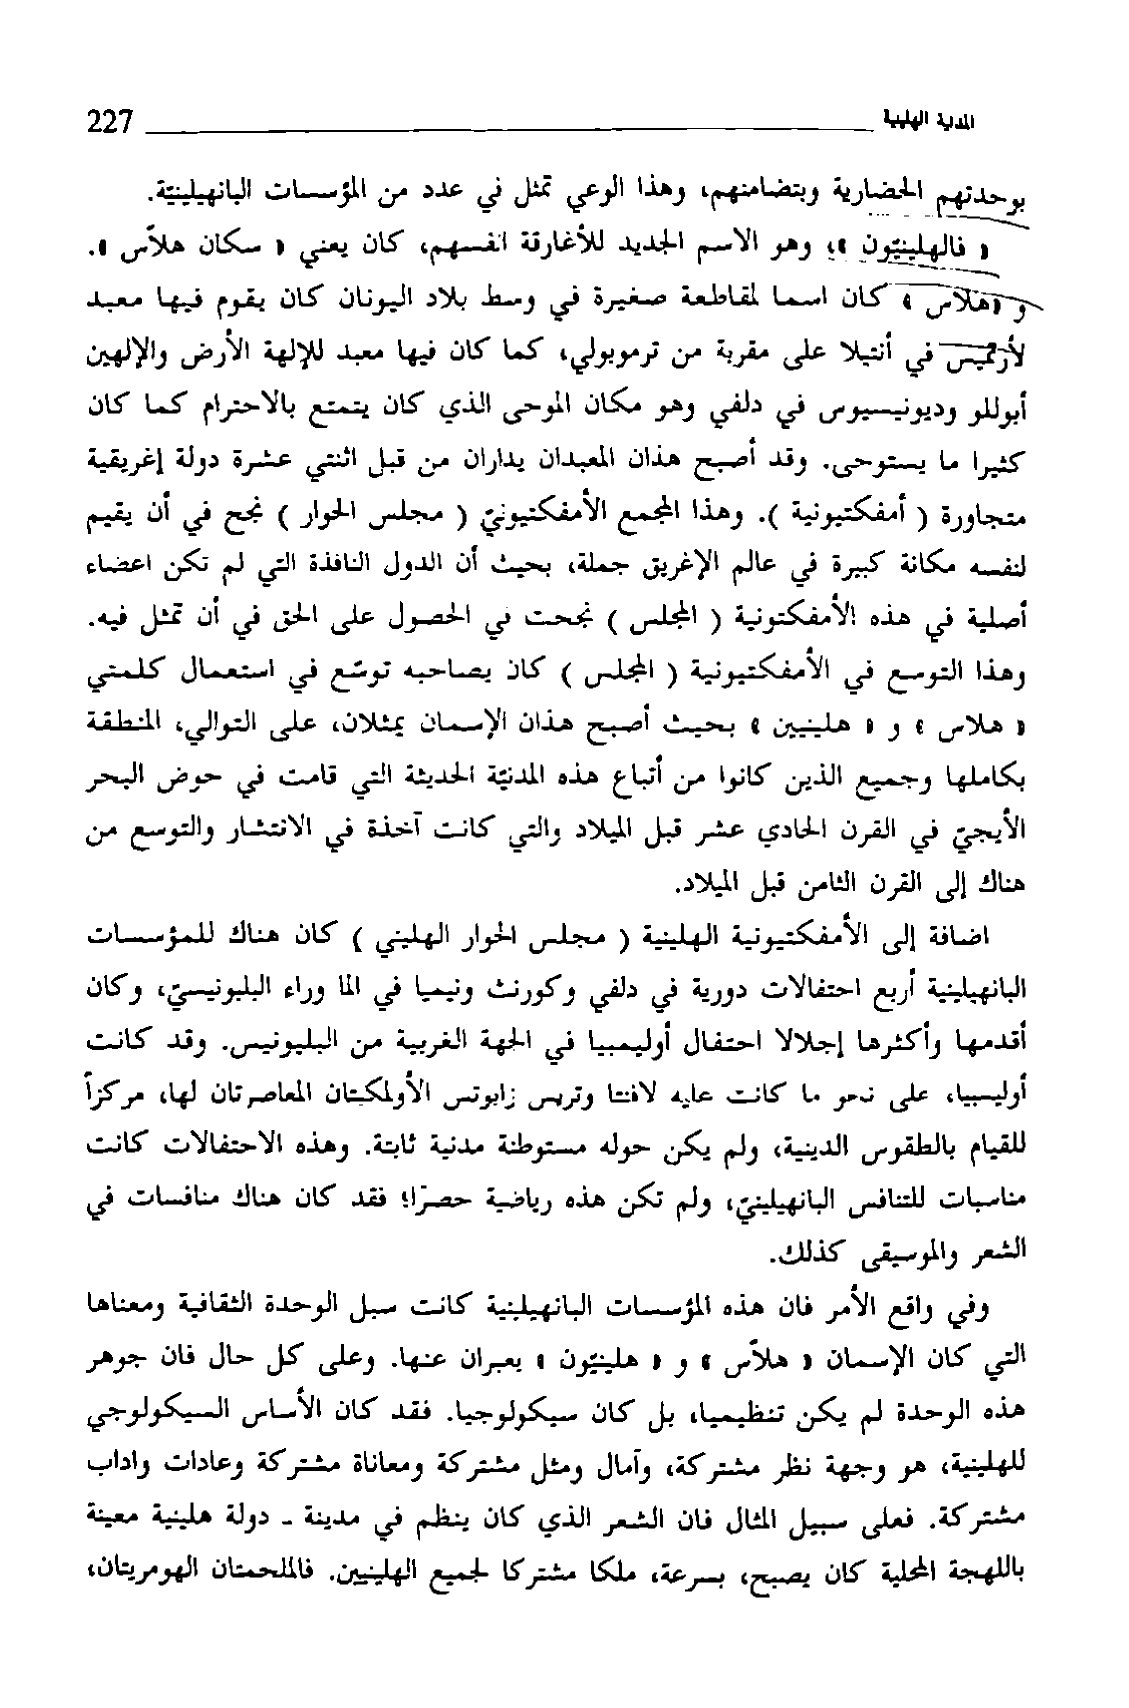 المدنية الهلينية 227
بوحدتهم الحضارية وبتضامنهم، وهذا الوعي تمثل في عدد من المؤسسات البانهيلينيّة.
« فالهلينيّون »، وهو الاسم الجديد للأغارقة انفسهم، كان يعني « سكان هلاّس ».
و «هلاس » كان اسما لمقاطعة صغيرة في وسط بلاد اليونان كان يقوم فيها معبد
لأرتميس في أنتيلا على مقربة من ترموبولي، كما كان فيها معبد للإلهة الأرض والإلهين
أبوللو وديونيسيوس في دلفي وهو مكان الموحى الذي كان يتمتع بالاحترام كما كان
كثيرا ما يستوحى. وقد أصبح هذان المعبدان يداران من قبل اثنتي عشرة دولة إغريقية
متجاورة ( أمفكتيونية ). وهذا المجمع الأمفكتيونيّ ( مجلس الحوار ) نجح في أن يقيم
لنفسه مكانة كبيرة في عالم الإغريق جملة، بحيث أن الدول النافذة التي لم تكن اعضاء
أصلية في هذه الأمفكتونية ( المجلس ) نجحت في الحصول على الحق في أن تمثل فيه.
وهذا التوسع في الأمفكتيونية ( المجلس ) كان يصاحبه توسّع في استعمال كلمتي
« هلاس » و « هلينيين » بحيث أصبح هذان الإسمان يمثلان، على التوالي، المنطقة
بكاملها وجميع الذين كانوا من أتباع هذه المدنيّة الحديثة التي قامت في حوض البحر
الأيجيّ في القرن الحادي عشر قبل الميلاد والتي كانت آخذة في الانتشار والتوسع من
هناك إلى القرن الثامن قبل الميلاد.
اضافة إلى الأمفكتيونية الهلينية ( مجلس الحوار الهليني ) كان هناك للمؤسسات
البانهيلينية أربع احتفالات دورية في دلفي وكورنث ونيميا في الما وراء البليونيسيّ، وكان
أقدمها وأكثرها إجلالا احتفال أوليمبيا في الجهة الغربية من البليونيس. وقد كانت
أوليبيا، على نحو ما كانت عليه لافنتا وتريس زابوتس الأولمكيتان المعاصرتان لها، مركزاً
للقيام بالطقوس الدينية، ولم يكن حوله مستوطنة مدنية ثابتة. وهذه الاحتفالات كانت
مناسبات للتنافس البانهيلينيّ، ولم تكن هذه رياضية حصرًا؛ فقد كان هناك منافسات في
الشعر والموسيقى كذلك.
وفي واقع الأمر فان هذه المؤسسات البانهيلينية كانت سبل الوحدة الثقافية ومعناها
التي كان الإسمان « هلاّس » و « هلينيّون » يعبران عنها. وعلى كل حال فان جوهر
هذه الوحدة لم يكن تنظيميا، بل كان سيكولوجيا. فقد كان الأساس السيكولوجي
للهلينية، هو وجهة نظر مشتركة، وآمال ومثل مشتركة ومعاناة مشتركة وعادات واداب
مشتركة. فعلى سبيل المثال فان الشعر الذي كان ينظم في مدينة ـ دولة هلينية معينة
باللهجة المحلية كان يصبح، بسرعة، ملكا مشتركا لجميع الهلينيين. فالملحمتان الهومريتان،